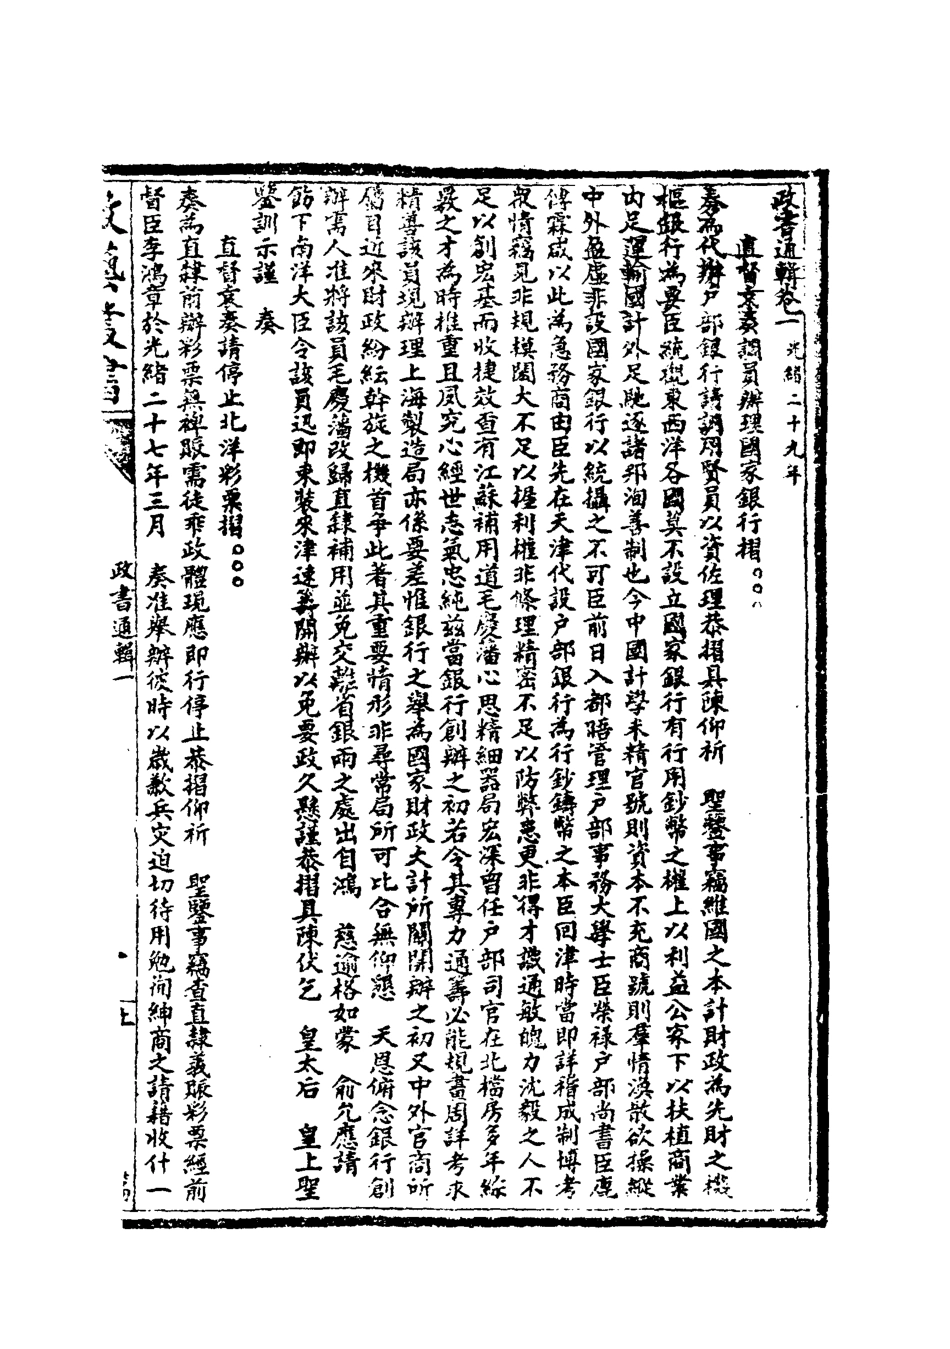 政書通輯卷一 光緒二十九年
直督袁奏調員辦理國家銀行摺。。。
奏為代辦戶部銀行請調用賢員以資佐理恭摺具陳仰祈 聖鑒事竊維國之本計財政為先財之機
樞銀行為冀臣統觀東西洋各國莫不設立國家銀行有行用鈔幣之權上以利益公家下以扶植商業
內足運輸國計外足馳逐諸邦洵善制也今中國計學未精官號則資本不充商號則羣情渙散欲操縱
中外盈虛非設國家銀行以統攝之不可臣前日入都晤管理戶部事務大學士臣榮祿戶部尚書臣鹿
傳霖咸以此為急務商由臣先在天津代設戶部銀行為行鈔鑄幣之本臣回津時當即詳稽成制博考
眾情竊見非規模闊大不足以握利權非條理精密不足以防弊患更非得才識通敏魄力沈毅之人不
足以創宏基而收捷效查有江蘇補用道毛慶藩心思精細器局宏深曾任戶部司官在北檔房多年綜
覈之才為時推重且夙究心經世志氣忠純茲當銀行創辦之初若令其專力通籌必能規畫周詳考求
精善該員現辦理上海製造局亦係要差惟銀行之舉為國家財政大計所關開辦之初又中外官商所
屬目近來財政紛紜幹旋之機首爭此著其重要情形非尋常局所可比合無仰懇 天恩俯念銀行創
辦需人准將該員毛慶藩改歸直隸補用並免交離省銀兩之處出自鴻 慈逾格如蒙 俞允應請
飭下南洋大臣令該員迅即束裝來津速籌開辦以免要政久懸謹恭摺具陳伏乞 皇太后 皇上聖
鑒訓示謹 奏
直督袁奏請停止北洋彩票摺。。。
奏為直隸前辦彩票無裨賑需徒乖政體現應即行停止恭摺仰祈 聖鑒事竊查直隸義賑彩票經前
督臣李鴻章於光緒二十七年三月 奏准舉辦彼時以歲歉兵灾迫切待用勉徇紳商之請藉收什一
政書通輯一